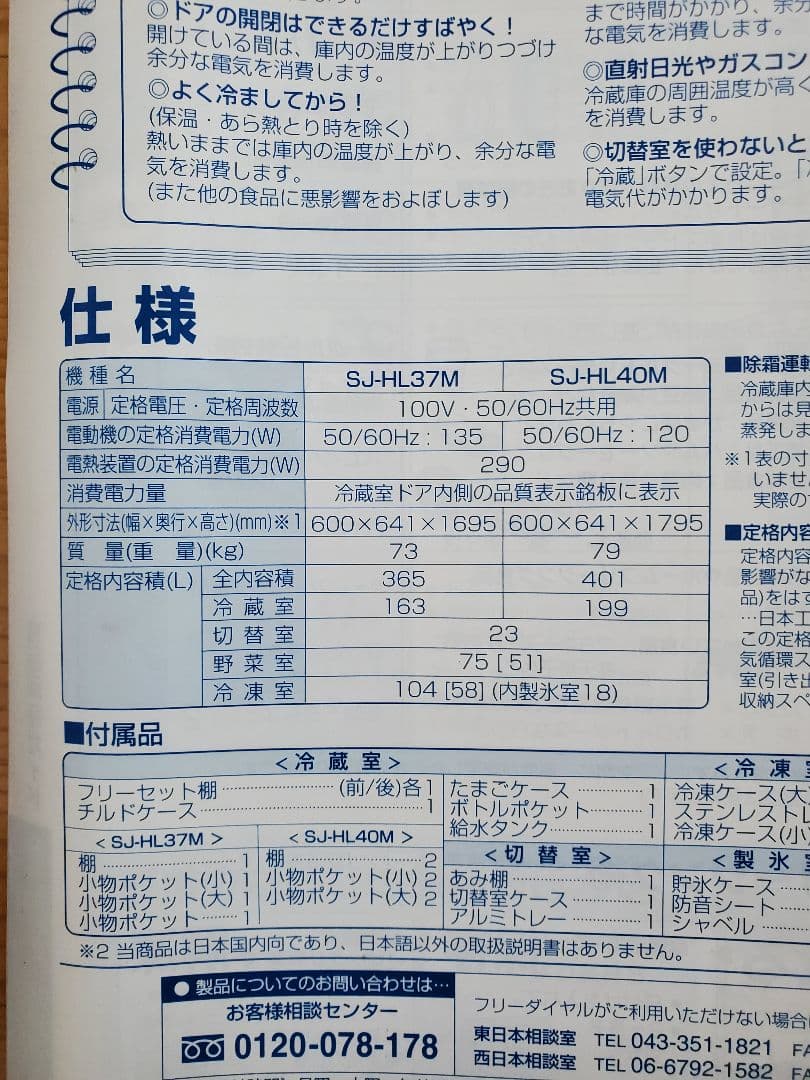 ◎ドアの開閉はできるだけすばやく！
開けている間は、庫内の温度が上がりつづけ
余分な電気を消費します。
◎よく冷ましてから！
(保温・あら熱とり時を除く)
熱いままでは庫内の温度が上がり、余分な電
気を消費します。
(また他の食品に悪影響をおよぼします)
まで時間がかかり、余分
な電気を消費します。
◎直射日光やガスコン
冷蔵庫の周囲温度が高く
を消費します。
◎切替室を使わないと
「冷蔵」ボタンで設定。「
電気代がかかります。
仕様
機種名 SJ-HL37M SJ-HL40M
電源 定格電圧・定格周波数 100V・50/60Hz共用
電動機の定格消費電力(W) 50/60Hz：135 50/60Hz：120
電熱装置の定格消費電力(W) 290
消費電力量 冷蔵室ドア内側の品質表示銘板に表示
外形寸法(幅×奥行×高さ)(mm)※1 600×641×1695 600×641×1795
質量(重量)(kg) 73 79
定格内容積(L) 全内容積 365 401
冷蔵室 163 199
切替室 23
野菜室 75 [51]
冷凍室 104 [58] (内製氷室18)
■除霜運転
冷蔵庫内
からは見
蒸発しま
※1表の寸
いません
実際の
■定格内容
定格内容
影響がな
品)をはす
…日本工
この定格
気循環ス
室(引き出
収納スペ
■付属品
<冷蔵室>
フリーセット棚 (前/後)各1
チルドケース 1
<SJ-HL37M>
棚 1
小物ポケット(小) 1
小物ポケット(大) 1
小物ポケット 1
<SJ-HL40M>
棚 2
小物ポケット(小) 2
小物ポケット(大) 2
たまごケース 1
ボトルポケット 1
給水タンク 1
<切替室>
あみ棚 1
切替室ケース 1
アルミトレー 1
<冷凍室
冷凍ケース(大)
ステンレストレ
冷凍ケース(小)
<製氷室
貯氷ケース
防音シート
シャベル
※2 当商品は日本国内向であり、日本語以外の取扱説明書はありません。
●製品についてのお問い合わせは…
お客様相談センター
0120-078-178
フリーダイヤルがご利用いただけない場合は
東日本相談室 TEL 043-351-1821 FA
西日本相談室 TEL 06-6792-1582 FA